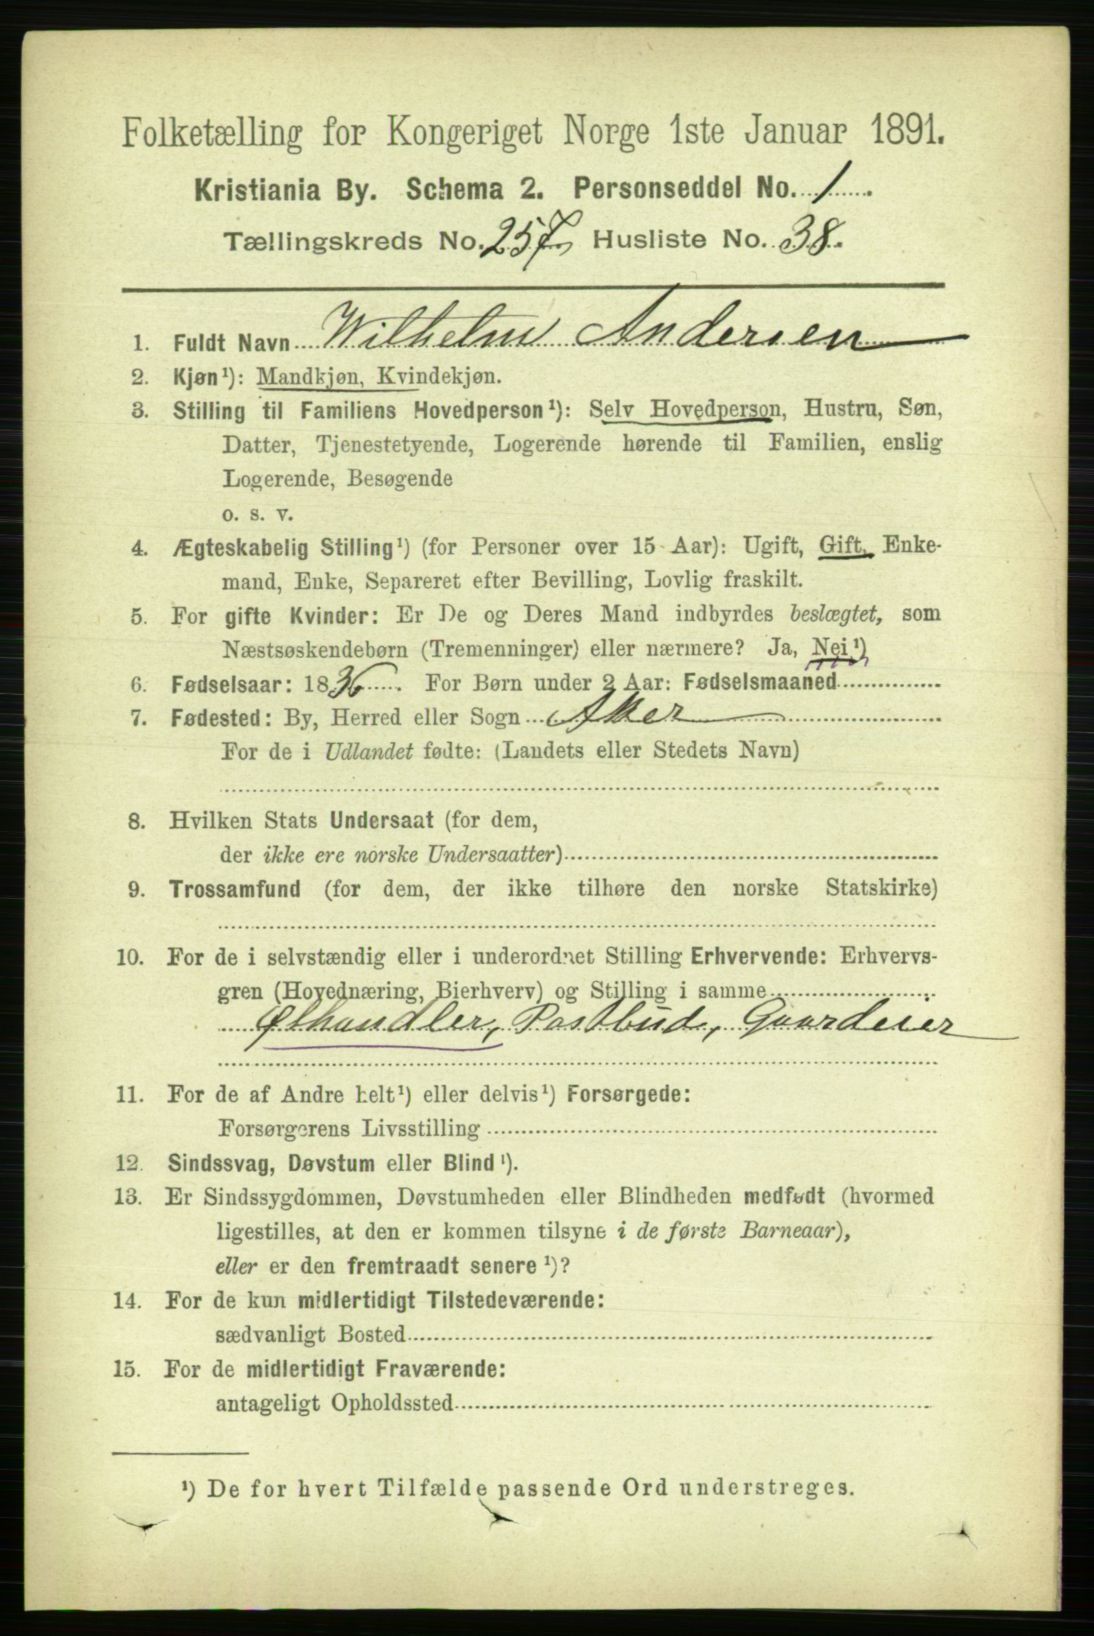 Folketælling for Kongeriget Norge 1ste Januar 1891.
Kristiania By. Schema 2. Personseddel No. 1.
Tællingskreds No. 257, Husliste No. 38.
1. Fuldt Navn Wilhelm Andersen
2. Kjøn¹): Mandkjøn, Kvindekjøn.
3. Stilling til Familiens Hovedperson¹): Selv Hovedperson, Hustru, Søn,
Datter, Tjenestetyende, Logerende hørende til Familien, enslig
Logerende, Besøgende
o. s. v.
4. Ægteskabelig Stilling¹) (for Personer over 15 Aar): Ugift, Gift, Enke-
mand, Enke, Separeret efter Bevilling, Lovlig fraskilt.
5. For gifte Kvinder: Er De og Deres Mand indbyrdes beslægtet, som
Næstsøskendebørn (Tremenninger) eller nærmere? Ja, Nei¹)
6. Fødselsaar: 1836. For Børn under 2 Aar: Fødselsmaaned
7. Fødested: By, Herred eller Sogn Aker
For de i Udlandet fødte: (Landets eller Stedets Navn)
8. Hvilken Stats Undersaat (for dem,
der ikke ere norske Undersaatter)
9. Trossamfund (for dem, der ikke tilhøre den norske Statskirke)
10. For de i selvstændig eller i underordnet Stilling Erhvervende: Erhvervs-
gren (Hovednæring, Bierhverv) og Stilling i samme
Ølhandler, Postbud, Gaardeier
11. For de af Andre helt¹) eller delvis¹) Forsørgede:
Forsørgerens Livsstilling
12. Sindssvag, Døvstum eller Blind¹).
13. Er Sindssygdommen, Døvstumheden eller Blindheden medfødt (hvormed
ligestilles, at den er kommen tilsyne i de første Barneaar),
eller er den fremtraadt senere¹)?
14. For de kun midlertidigt Tilstedeværende:
sædvanligt Bosted
15. For de midlertidigt Fraværende:
antageligt Opholdssted
¹) De for hvert Tilfælde passende Ord understreges.